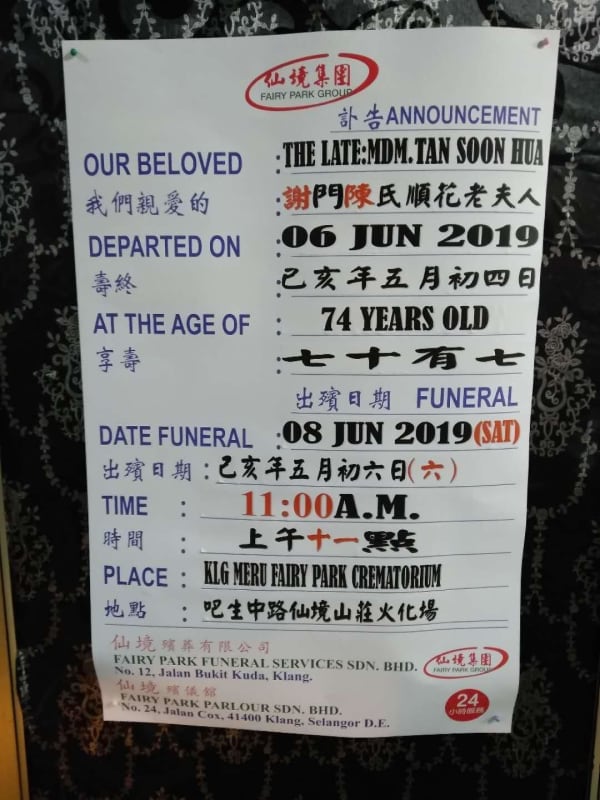 仙境集團
FAIRY PARK GROUP
訃告 ANNOUNCEMENT
OUR BELOVED : THE LATE:MDM.TAN SOON HUA
我們親愛的 : 謝門陳氏順花老夫人
DEPARTED ON : 06 JUN 2019
壽終 : 己亥年五月初四日
AT THE AGE OF : 74 YEARS OLD
享壽 : 七十有七
出殯日期 FUNERAL
DATE FUNERAL : 08 JUN 2019(SAT)
出殯日期 : 己亥年五月初六日(六)
TIME : 11:00A.M.
時間 : 上午十一點
PLACE : KLG MERU FAIRY PARK CREMATORIUM
地點 : 吧生中路仙境山莊火化場
仙境殯葬有限公司
FAIRY PARK FUNERAL SERVICES SDN. BHD.
No. 12, Jalan Bukit Kuda, Klang.
仙境集團
FAIRY PARK GROUP
仙境 殯儀館
FAIRY PARK PARLOUR SDN. BHD.
No. 24, Jalan Cox, 41400 Klang, Selangor D.E.
24
小時服務